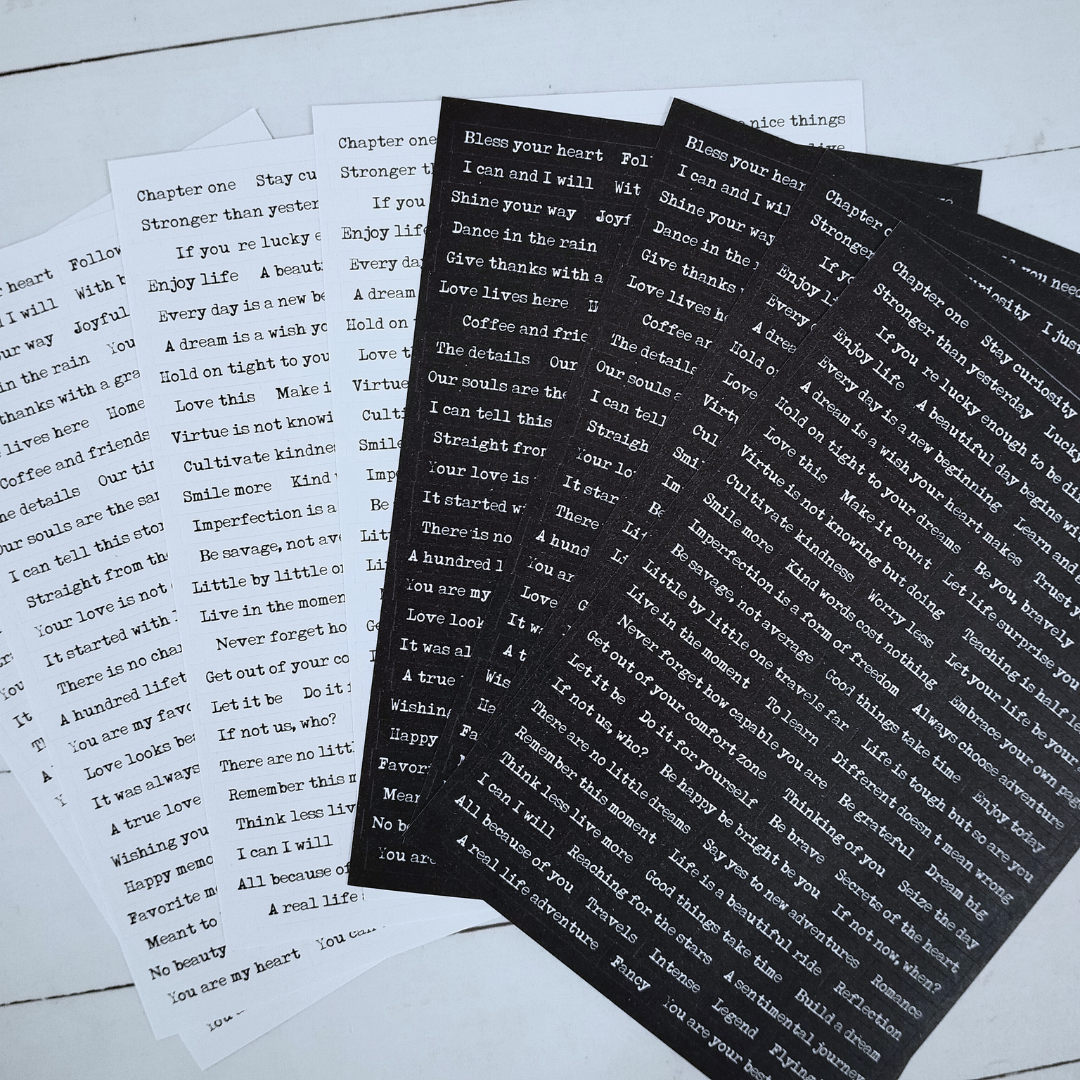 heart Follow
I will With b
ur way Joyful
in the rain You
thanks with a gra
lives here Home
Coffee and friends
he details Our tin
Our souls are the sa
I can tell this stor
Straight from the
Your love is not
It started with
There is no cha
A hundred lifet
You are my favo
Love looks be
It was always
A true love
Wishing you
Happy memo
Favorite m
Meant to
No beauty
You are my heart You can
Chapter one Stay cu
Stronger than yester
If you re lucky e
Enjoy life A beauti
Every day is a new be
A dream is a wish yo
Hold on tight to you
Love this Make i
Virtue is not knowi
Cultivate kindne
Smile more Kind
Imperfection is a
Be savage, not av
Little by little on
Live in the momen
Never forget ho
Get out of your co
Let it be Do it f
If not us, who?
There are no littl
Remember this m
Think less liv
I can I will
All because of
A real life
Chapter one
nice things
Stronger th
live
If you
Enjoy life
Every da
A dream
Hold on
Love t
Virtue
Culti
Smile
Impe
Be
Litt
Li
Ge
Bless your heart Fol
I can and I will Wit
Shine your way Joyf
Dance in the rain
Give thanks with a
Love lives here H
Coffee and frie
The details Our
Our souls are the
I can tell this
Straight from
Your love is
It started w
There is no
A hundred l
You are my
Love look
It was al
A true
Wishing
Happy
Favor
Mean
No be
You are
Bless your hear
I can and I wil
Shine your way
Dance in the
Give thanks
Love lives h
Coffee an
The detail
Our souls
I can tell
Straigh
Your lo
It star
There
A hund
You ar
Love
It w
A t
Wis
Ha
Fa
Chapter
Stronger
If y
Enjoy l
Every
A drea
Hold o
Love
Virtu
Cul
Smi
Im
Be
Lit
Li
G
you need
uriosity I just
Chapter one Stay curiosity
Stronger than yesterday Lucky
If you re lucky enough to be dif
Enjoy life A beautiful day begins wi
Every day is a new beginning Learn and g
A dream is a wish your heart makes Trust y
Hold on tight to your dreams Be you, bravely
Love this Make it count Let life surprise you
Virtue is not knowing but doing Teaching is half l
Cultivate kindness Worry less Let your life be your
Smile more Kind words cost nothing Embrace your own pag
Imperfection is a form of freedom Always choose adventure
Be savage, not average Good things take time Enjoy today
Little by little one travels far Life is tough but so are you
Live in the moment To learn Different doesn t mean wrong
Never forget how capable you are Be grateful Dream big
Get out of your comfort zone Thinking of you Seize the day
Let it be Do it for yourself Be brave Secrets of the heart
If not us, who? Be happy be bright be you If not now, when?
There are no little dreams Say yes to new adventures Romance
Remember this moment Life is a beautiful ride Reflection
Think less live more Good things take time Build a dream
I can I will Reaching for the stars A sentimental journey
All because of you Travels Intense Legend Flying
A real life adventure Fancy You are your best